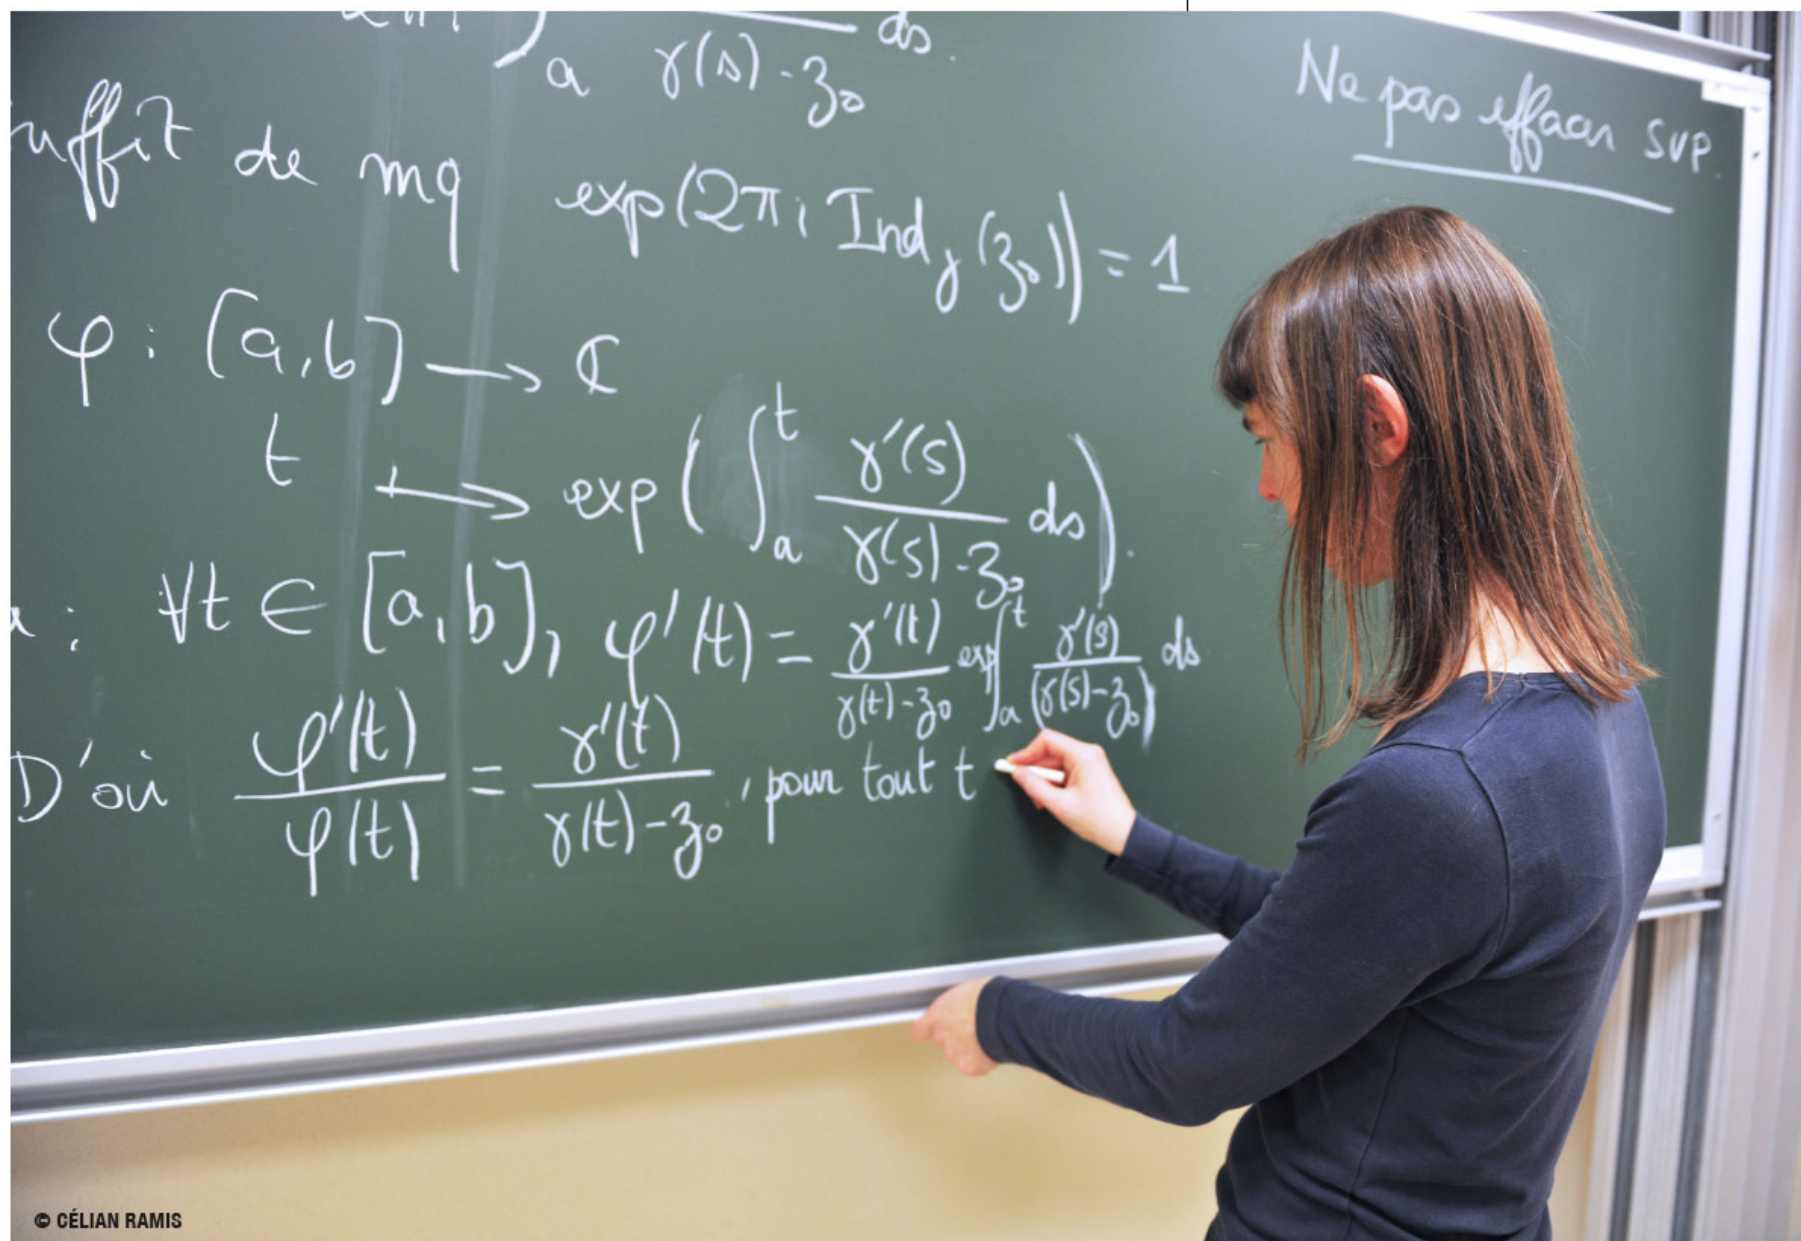 2πi ∫a γ(s) - z0 ds.
Ne pas effacer SVP.
uffit de mq exp(2πi Indγ(z0)) = 1
φ : [a,b] → ℂ
t ↦ exp(∫a^t γ'(s)/(γ(s) - z0) ds).
a : ∀t ∈ [a,b], φ'(t) = γ'(t)/(γ(t) - z0) exp∫a^t γ'(s)/(γ(s) - z0) ds
D'où φ'(t)/φ(t) = γ'(t)/(γ(t) - z0), pour tout t
© CÉLIAN RAMIS